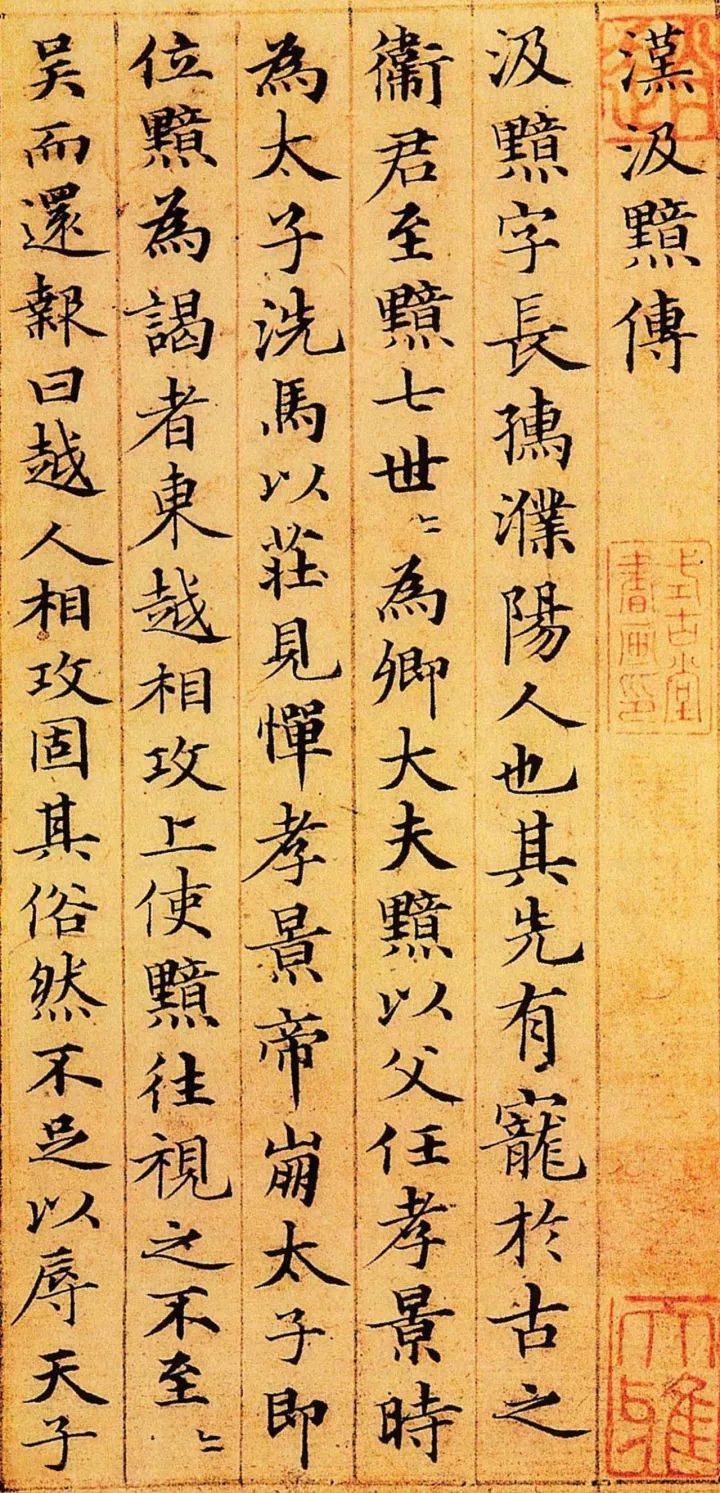 漢汲黯傳
汲黯字長孺濮陽人也其先有寵於古之
衞君至黯七世〻為卿大夫黯以父任孝景時
為太子洗馬以莊見憚孝景帝崩太子即
位黯為謁者東越相攻上使黯往視之不至〻
吴而還報曰越人相攻固其俗然不足以辱天子
式古堂
書画印
大雅